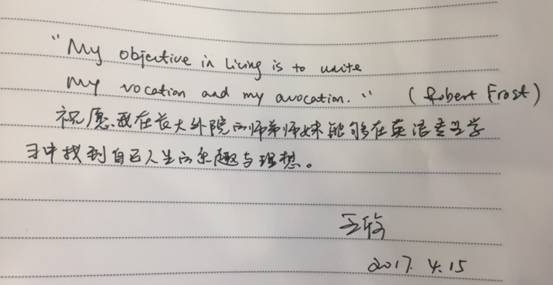 "My objective in living is to unite
my vocation and my avocation." (Robert Frost)
祝愿我在长大外院的师弟师妹能够在英语专业学
习中找到自己人生的乐趣与理想。
2017. 4. 15